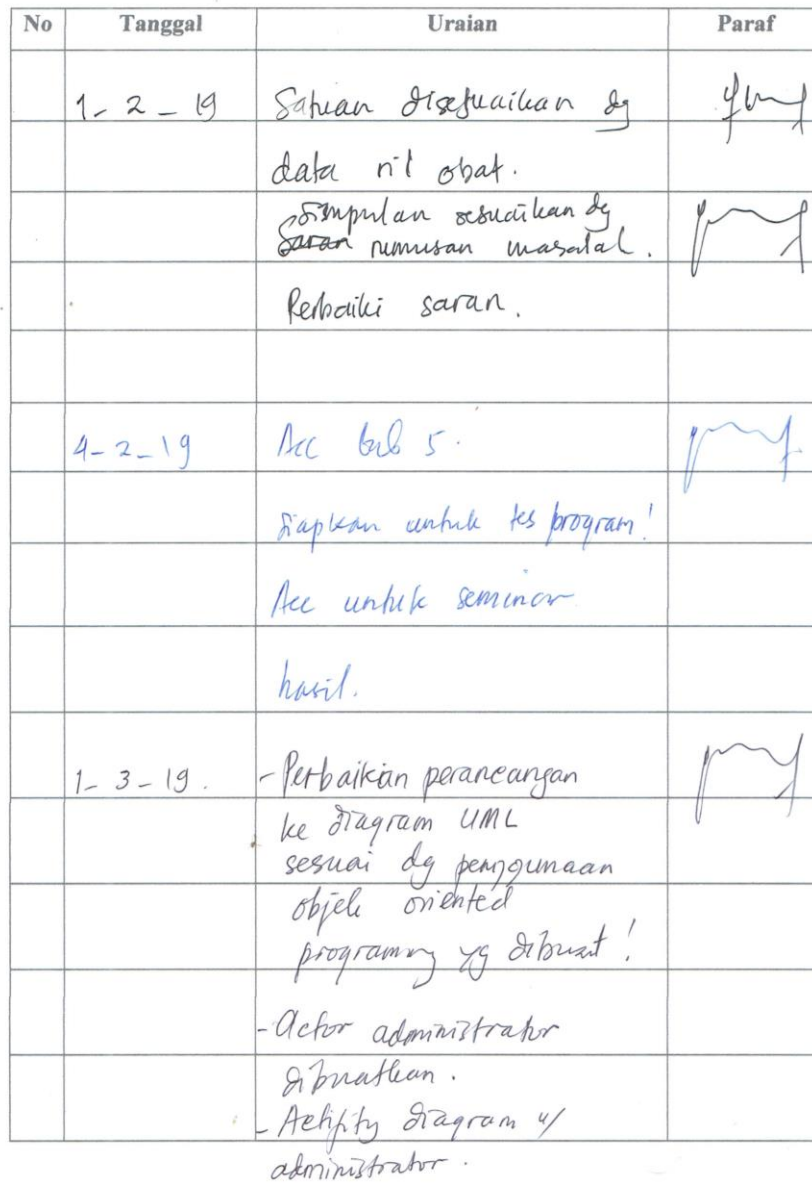 No Tanggal Uraian Paraf
1-2-19 Satuan disesuaikan dg
data ril obat.
Simpulan sesuaikan dg
Saran rumusan masalah.
Perbaiki saran.
4-2-19 Acc bab 5.
Siapkan untuk tes program!
Acc untuk seminar
hasil.
1-3-19. -Perbaikan perancangan
ke diagram UML
sesuai dg penggunaan
objek oriented
programing yg dibuat!
-Actor administrator
dibuatkan.
-Actifity diagram u/
administrator.